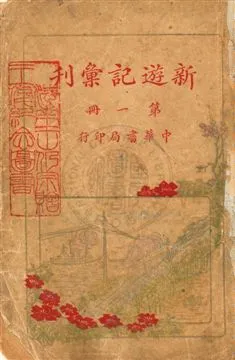 新遊記彙刊
第一冊
中華書局印行